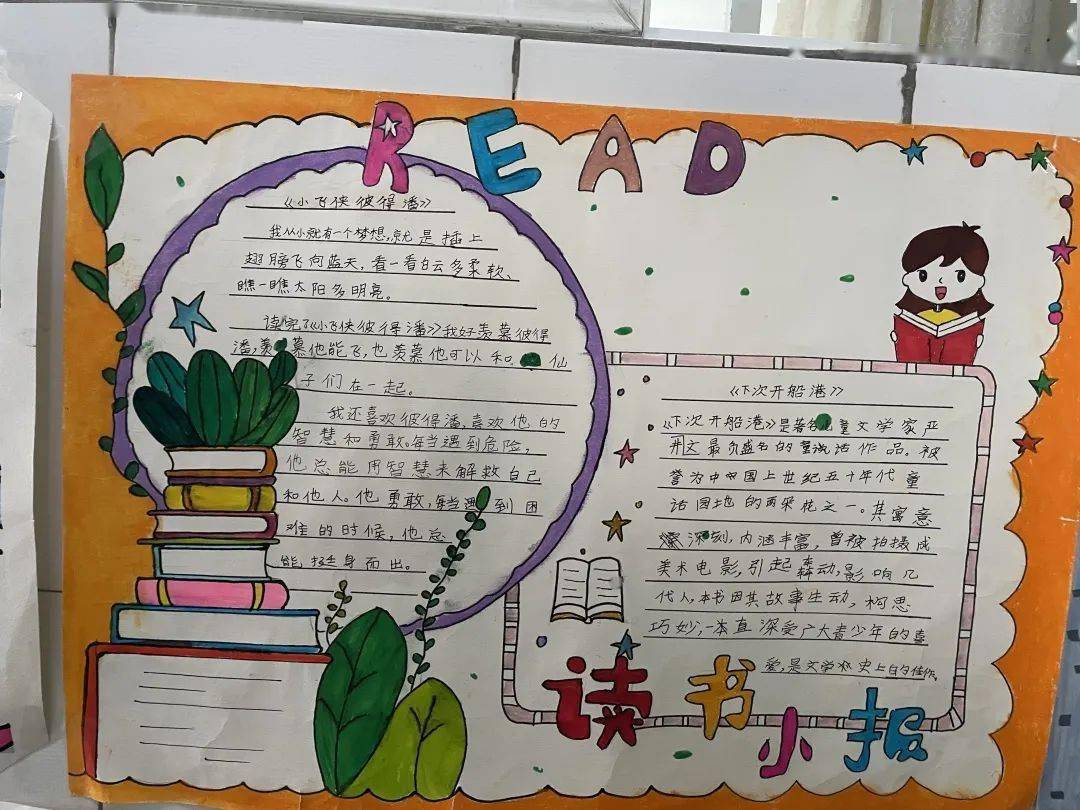 READ
《小飞侠彼得潘》
我从小就有一个梦想,就是插上
翅膀飞向蓝天,看一看白云多柔软、
瞧一瞧太阳多明亮。
读完了《小飞侠彼得潘》我好羡慕彼得
潘,羡慕他能飞,也羡慕他可以和 仙
子们在一起。
我还喜欢彼得潘,喜欢他的
智慧和勇敢。每当遇到危险,
他总能用智慧来解救自己
和他人。他勇敢,每当遇到困
难的时候,他总
能挺身而出。
《下次开船港》
《下次开船港》是著名儿童文学家严
最负盛名的童话作品。被
誉为中国上世纪五十年代童
话园地的两朵花之一。其寓意
深刻,内涵丰富,曾被拍摄成
美术电影,引起轰动,影响几
代人,本书因其故事生动,构思
巧妙,一本直深受广大青少年的喜
爱,是文学 史上的佳作。
读书小报